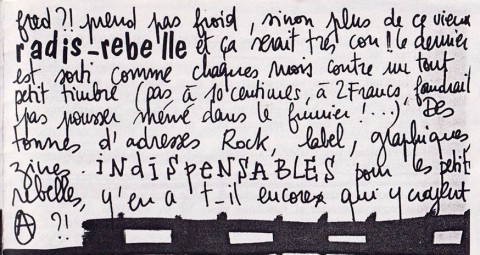 fred ?! prend pas froid, sinon plus de ce vieux
radis-rebelle et ça serait très con ! le dernier
est sorti comme chaques mois contre un tout
petit timbre (pas à 10 centimes, à 2 Francs, faudrait
pas pousser mémé dans le fumier !...) Des
tonnes d'adresses Rock, label, graphiques
zines. iNdiSpeNSABLES pour les petit
rebelles, y'en a t-il encore qui y croyent
Ⓐ ?!